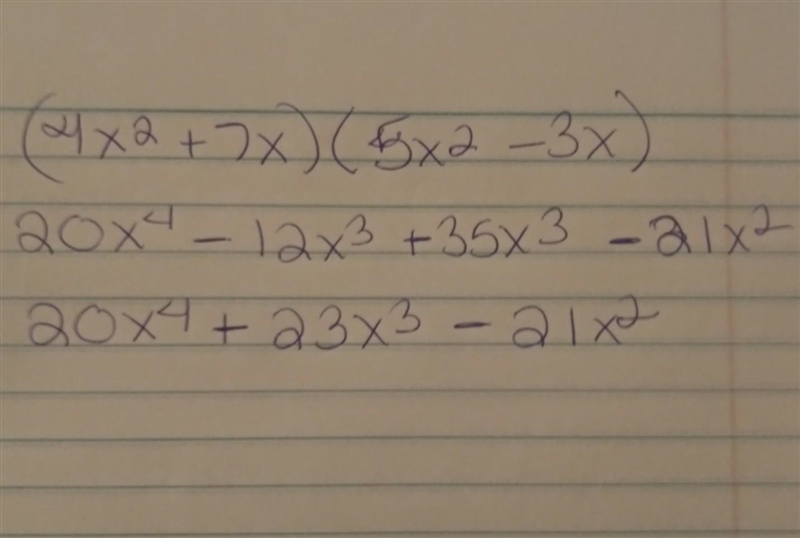 (4x² + 7x)(5x² - 3x)
20x⁴ - 12x³ + 35x³ - 21x²
20x⁴ + 23x³ - 21x²